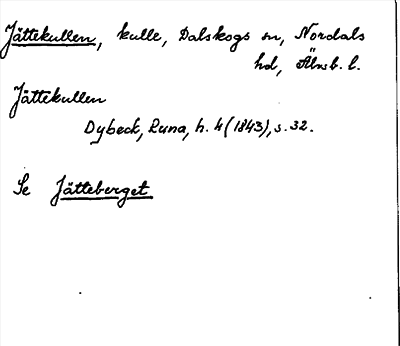 Jättekullen, kulle, Dalskogs sn, Nordals
hd, Älvsb. l.
Jättekullen
Dybeck, Runa, h. 4 (1843), s. 32.
Se Jätteberget